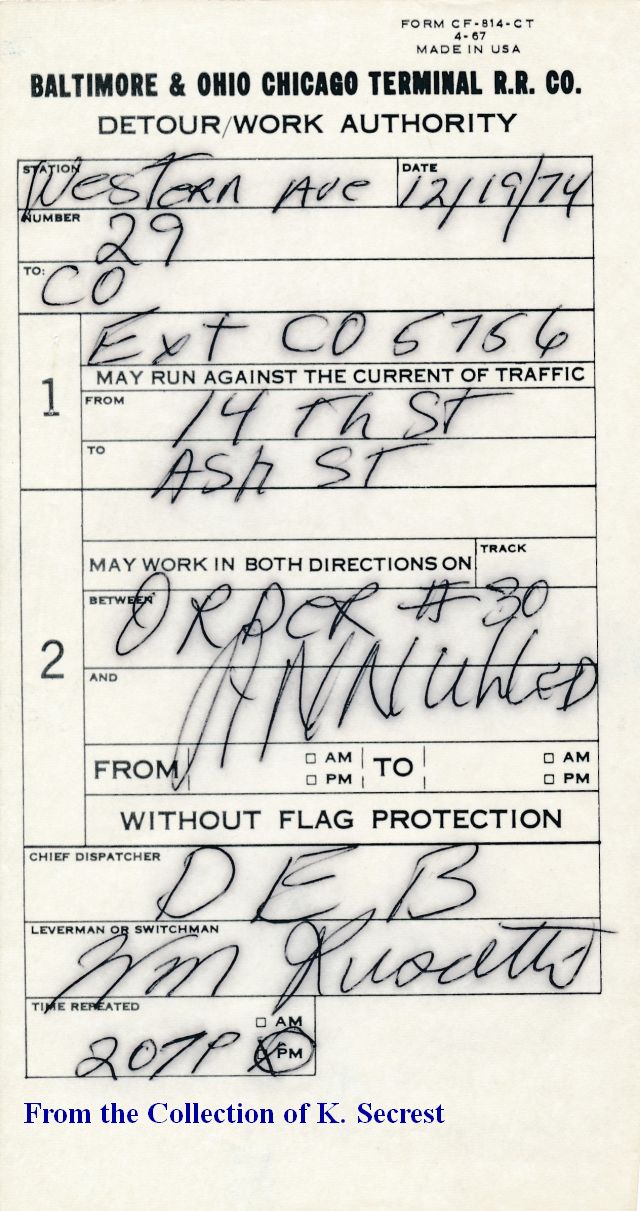 FORM CF-814-CT
4-67
MADE IN USA
BALTIMORE & OHIO CHICAGO TERMINAL R.R. CO.
DETOUR/WORK AUTHORITY
STATION Western Ave DATE 12/19/74
NUMBER 29
TO: CO
1 Ext CO 5756
MAY RUN AGAINST THE CURRENT OF TRAFFIC
FROM 14 Th ST
TO ASh ST
2
MAY WORK IN BOTH DIRECTIONS ON TRACK
BETWEEN ORDER #30
AND ANNULLED
FROM AM PM TO AM PM
WITHOUT FLAG PROTECTION
CHIEF DISPATCHER D E B
LEVERMAN OR SWITCHMAN Wm
TIME REPEATED AM
207P PM
From the Collection of K. Secrest